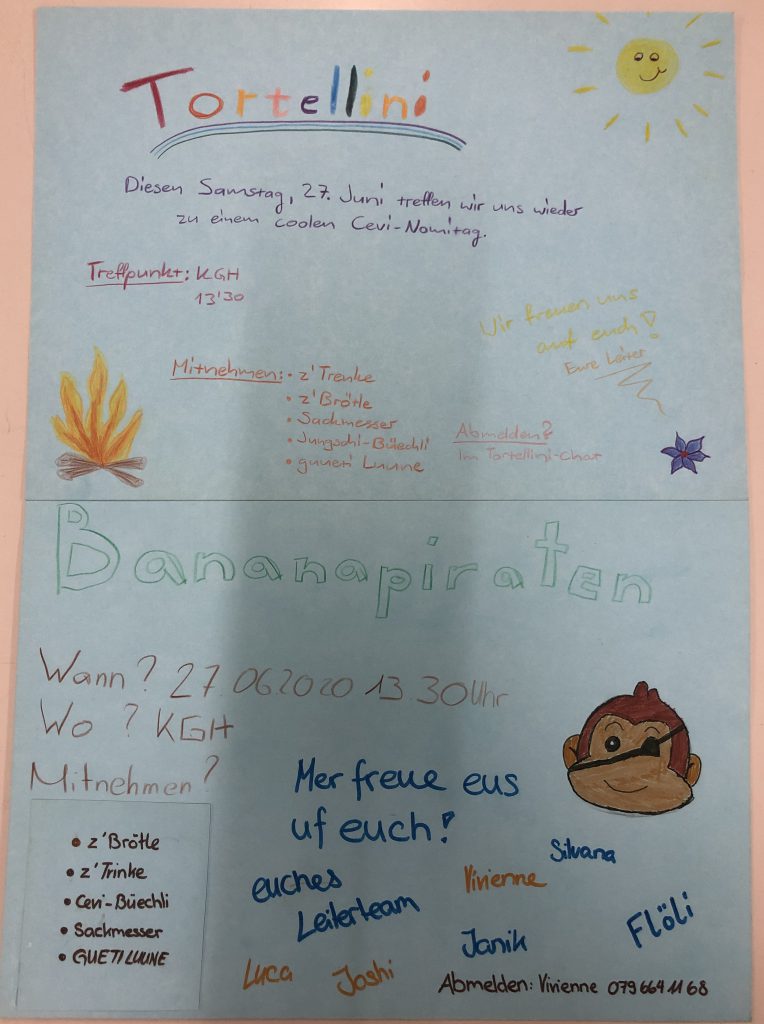 Tortellini
Diesen Samstag, 27. Juni treffen wir uns wieder
zu einem coolen Cevi-Nomitag.
Treffpunkt: KGH
13'30
Wir freuen uns
auf euch!
Eure Leiter
Mitnehmen: • z'Trenke
• z'Brötle
• Sackmesser
• Jungschi-Büechli
• gueti Luune
Abmelden?
Im Tortellini-Chat
Bananapiraten
Wann? 27.06.2020 13.30 Uhr
Wo? KGH
Mitnehmen?
• z'Brötle
• z'Trinke
• Cevi-Büechli
• Sackmesser
• GUETI LUUNE
Mer freue eus
uf euch!
euches
Leiterteam
Silvana
Vivienne
Flöli
Janik
Luca
Joshi
Abmelden: Vivienne 079 664 11 68